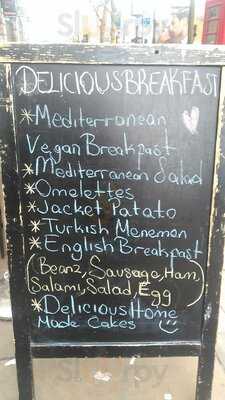 DELICIOUS BREAKFAST
*Mediterranean
Vegan Breakfast
*Mediterranean Salad
*Omelettes
*Jacket Patato
*Turkish Menemen
*English Breakfast
(Beanz, Sausage, Ham,
Salami, Salad, Egg)
*Delicious Home
Made Cakes